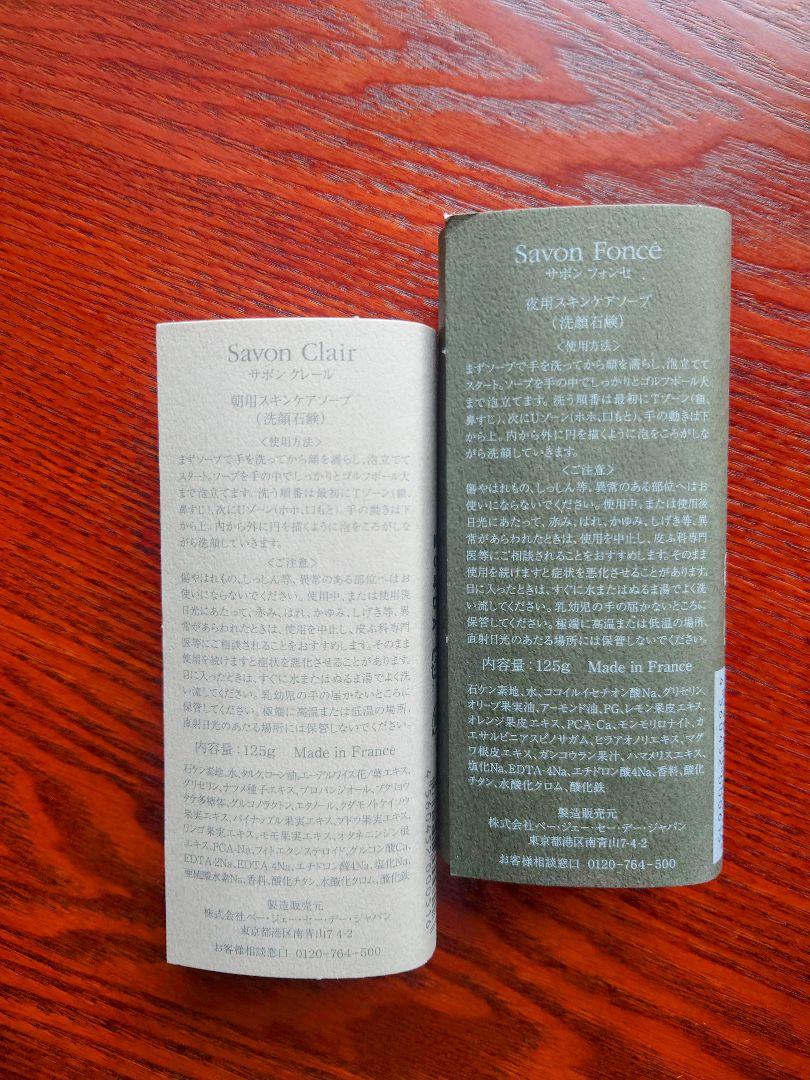 Savon Clair
サボン クレール
朝用スキンケアソープ
(洗顔石鹸)
<使用方法>
まずソープで手を洗ってから顔を濡らし、泡立てて
スタート。ソープを手の中でしっかりとゴルフボール大
まで泡立てます。洗う順番は最初にTゾーン(額、
鼻すじ)、次にUゾーン(ホホ、口もと)。手の動きは下
から上。内から外に円を描くように泡をころがしな
がら洗顔していきます。
<ご注意>
傷やはれもの、しっしん等、異常のある部位へはお
使いにならないでください。使用中、または使用後
日光にあたって、赤み、はれ、かゆみ、しげき等、異
常があらわれたときは、使用を中止し、皮ふ科専門
医等にご相談されることをおすすめします。そのまま
使用を続けますと症状を悪化させることがあります。
目に入ったときは、すぐに水またはぬるま湯でよく洗
い流してください。乳幼児の手の届かないところに
保管してください。極端に高温または低温の場所、
直射日光のあたる場所には保管しないでください。
内容量：125g Made in France
石ケン素地、水、タルク、コーン油、エーデルワイス花/葉エキス、
グリセリン、ナツメ種子エキス、プロパンジオール、ブクリョウ
タケ多糖体、グルコノラクトン、エタノール、クダモノトケイソウ
果実エキス、パイナップル果実エキス、ブドウ果実エキス、
リンゴ果実エキス、モモ果実エキス、オタネニンジン根
エキス、PCA-Na、フィトエクジステロイド、グルコン酸Ca、
EDTA-2Na、EDTA-4Na、エチドロン酸4Na、塩化Na、
亜硫酸水素Na、香料、酸化チタン、水酸化クロム、酸化鉄
製造販売元
株式会社ペー・ジェー・セー・デー・ジャパン
東京都港区南青山7-4-2
お客様相談窓口 0120-764-500
Savon Foncé
サボン フォンセ
夜用スキンケアソープ
(洗顔石鹸)
<使用方法>
まずソープで手を洗ってから顔を濡らし、泡立てて
スタート。ソープを手の中でしっかりとゴルフボール大
まで泡立てます。洗う順番は最初にTゾーン(額、
鼻すじ)、次にUゾーン(ホホ、口もと)。手の動きは下
から上。内から外に円を描くように泡をころがしな
がら洗顔していきます。
<ご注意>
傷やはれもの、しっしん等、異常のある部位へはお
使いにならないでください。使用中、または使用後
日光にあたって、赤み、はれ、かゆみ、しげき等、異
常があらわれたときは、使用を中止し、皮ふ科専門
医等にご相談されることをおすすめします。そのまま
使用を続けますと症状を悪化させることがあります。
目に入ったときは、すぐに水またはぬるま湯でよく洗
い流してください。乳幼児の手の届かないところに
保管してください。極端に高温または低温の場所、
直射日光のあたる場所には保管しないでください。
内容量：125g Made in France
石ケン素地、水、ココイルイセチオン酸Na、グリセリン、
オリーブ果実油、アーモンド油、PG、レモン果皮エキス、
オレンジ果皮エキス、PCA-Ca、モンモリロナイト、カ
エサルピニアスピノサガム、ヒラアオノリエキス、マグ
ワ根皮エキス、ガンコウラン果汁、ハマメリスエキス、
塩化Na、EDTA-4Na、エチドロン酸4Na、香料、酸化
チタン、水酸化クロム、酸化鉄
製造販売元
株式会社ペー・ジェー・セー・デー・ジャパン
東京都港区南青山7-4-2
お客様相談窓口 0120-764-500